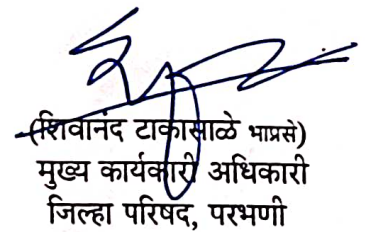 (शिवानंद टाकसाळे भाप्रसे)
मुख्य कार्यकारी अधिकारी
जिल्हा परिषद, परभणी